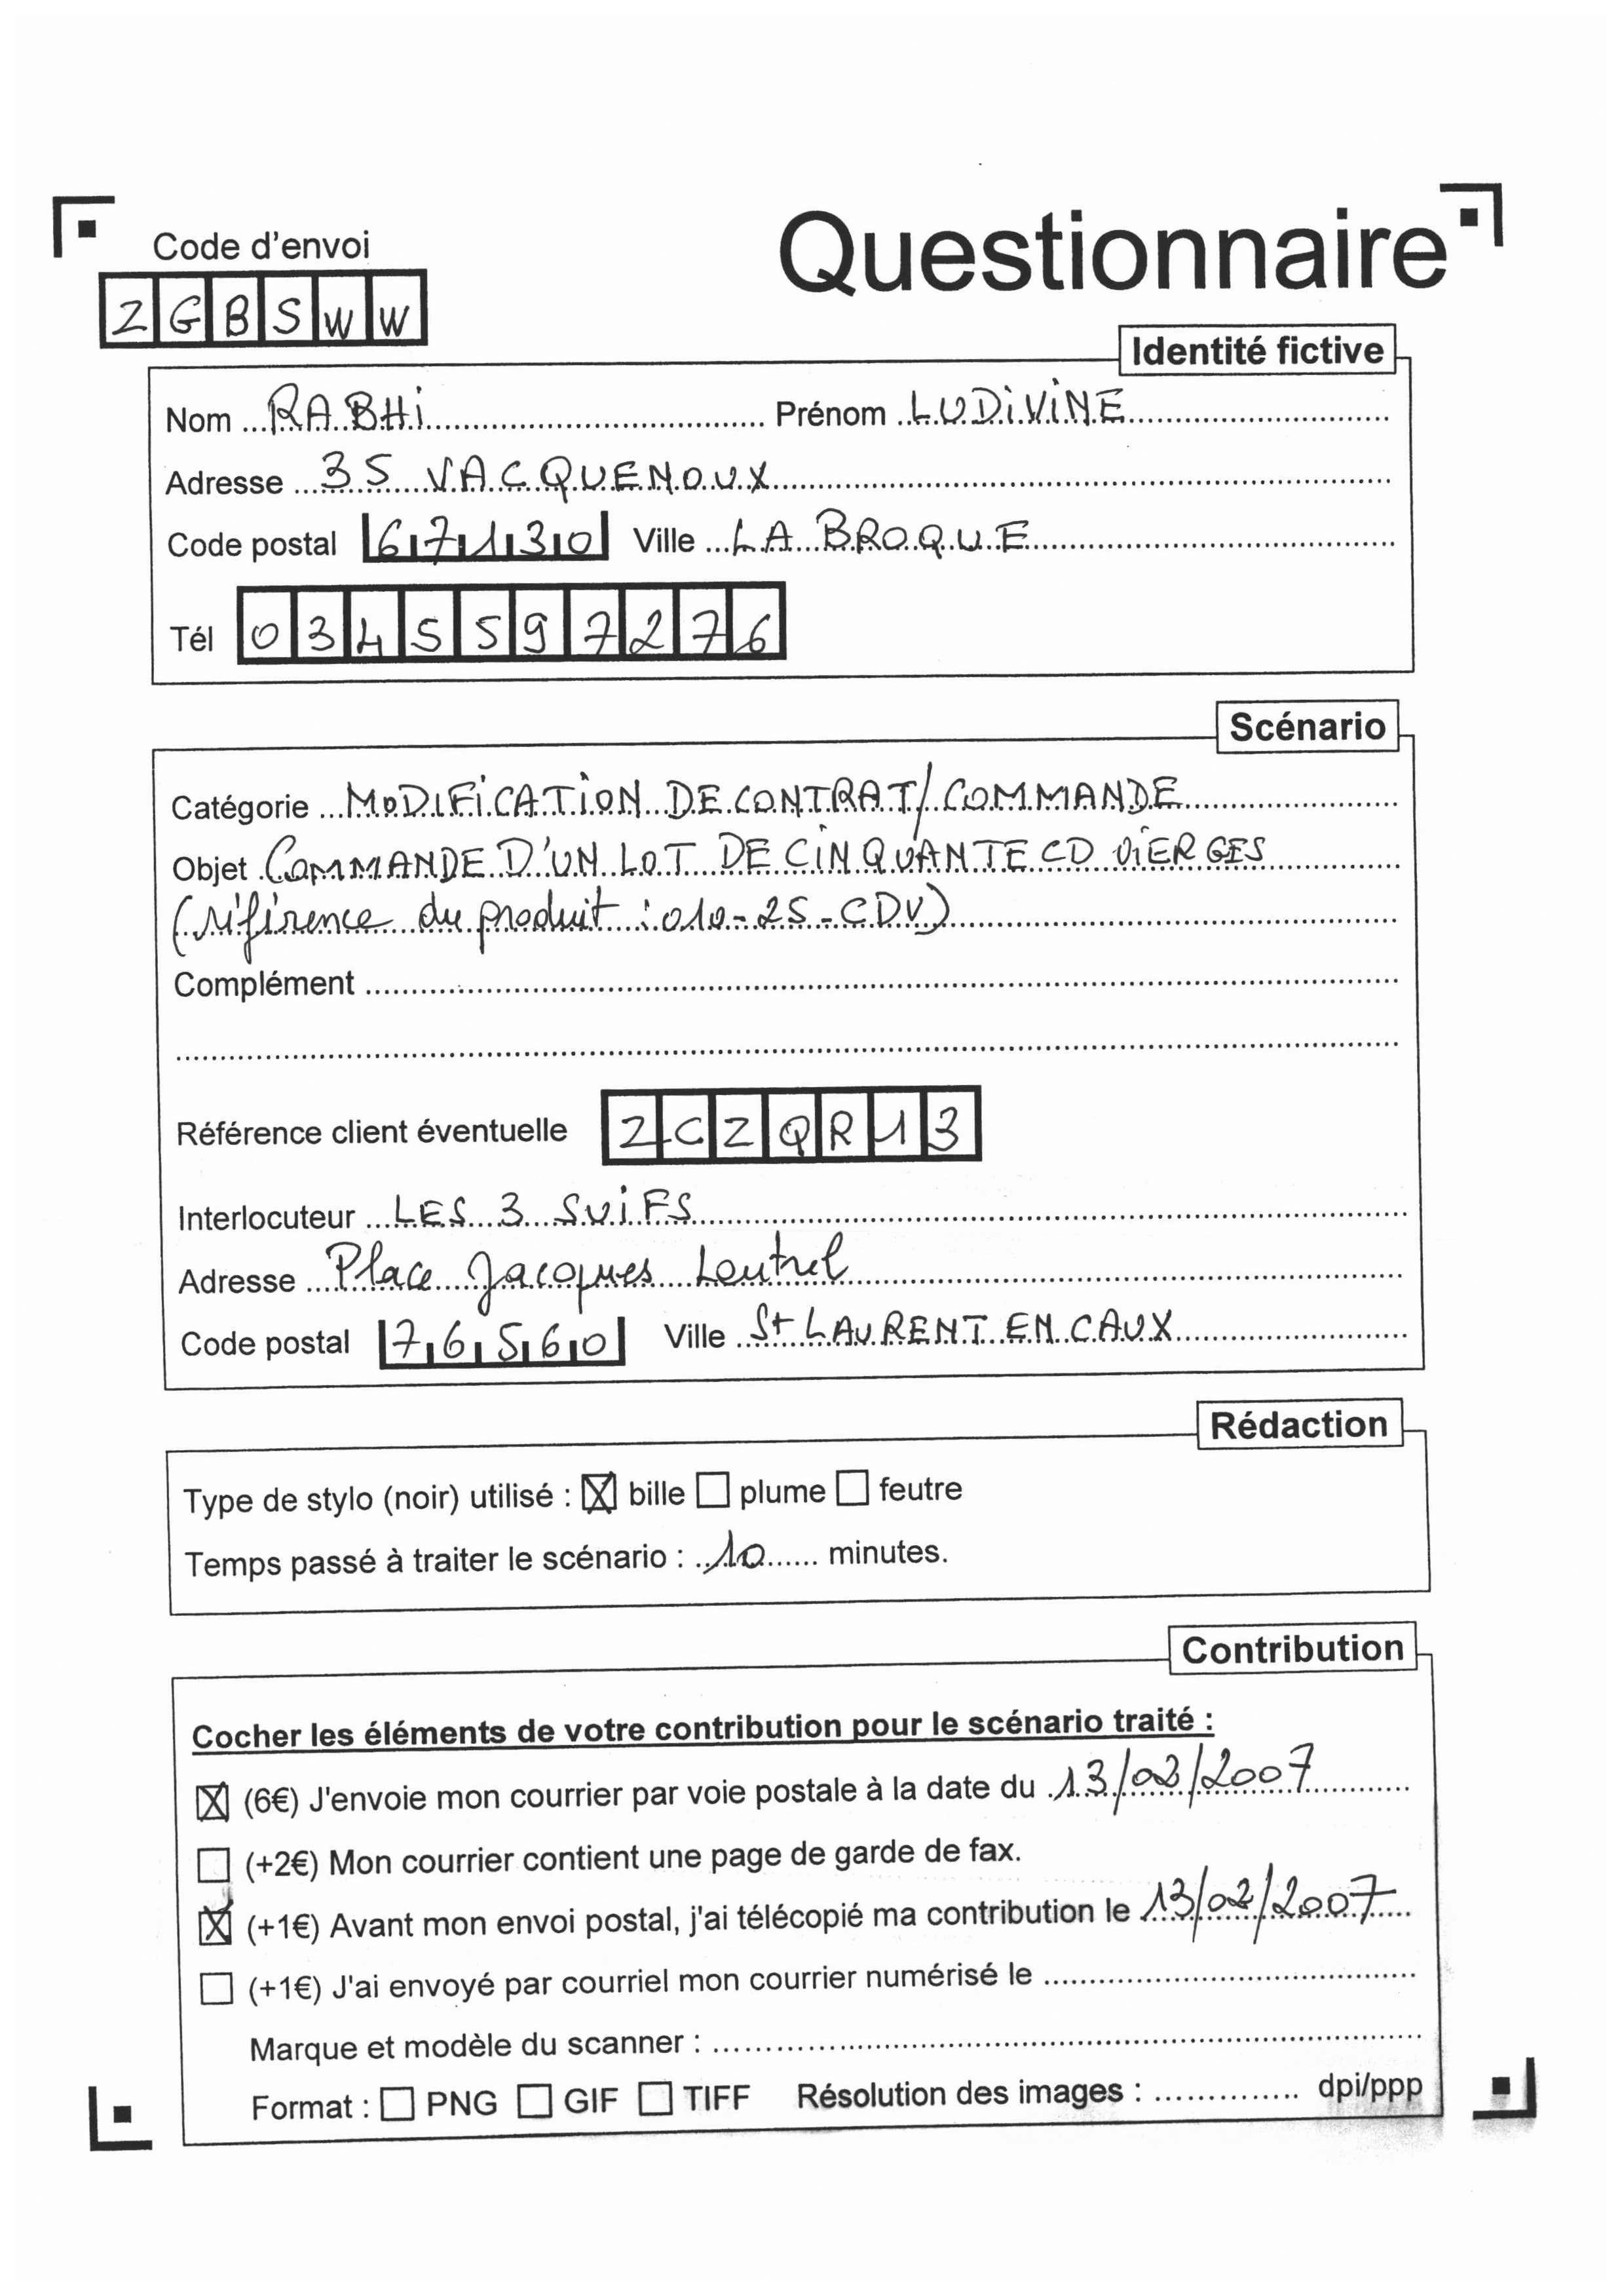 Questionnaire
Code d'envoi
ZGBSWW
Identité fictive
Nom RABHI Prénom LUDIVINE
Adresse 35 VACQUENOUX
Code postal 67130 Ville LA BROQUE
Tél 0345597276
Scénario
Catégorie MODIFICATION DE CONTRAT/COMMANDE
Objet COMMANDE D'UN LOT DE CINQUANTE CD VIERGES
(référence du produit : 010-25-CDV)
Complément
Référence client éventuelle ZCZQR13
Interlocuteur LES 3 SUIFS
Adresse Place Jacques Leutrel
Code postal 76560 Ville St LAURENT EN CAUX
Rédaction
Type de stylo (noir) utilisé : ☒ bille ☐ plume ☐ feutre
Temps passé à traiter le scénario : 10 minutes.
Contribution
Cocher les éléments de votre contribution pour le scénario traité :
☒ (6€) J'envoie mon courrier par voie postale à la date du 13/02/2007
☐ (+2€) Mon courrier contient une page de garde de fax.
☒ (+1€) Avant mon envoi postal, j'ai télécopié ma contribution le 13/02/2007
☐ (+1€) J'ai envoyé par courriel mon courrier numérisé le
Marque et modèle du scanner :
Format : ☐ PNG ☐ GIF ☐ TIFF Résolution des images : dpi/ppp